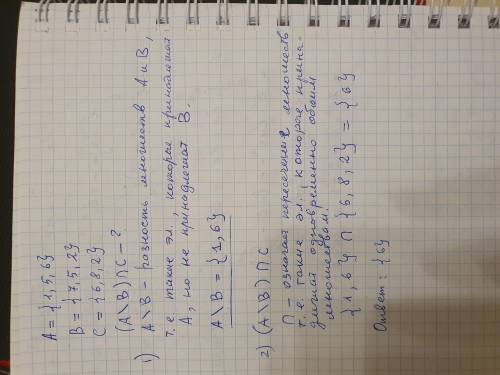 A = {1,5,6}
B = {7,5,2}
C = {6,8,2}
(A \ B) ∩ C - ?
1) A \ B - разность множеств A и B,
т.е. такие эл., которые принадлежат
A, но не принадлежат B.
A \ B = {1,6}
2) (A \ B) ∩ C
∩ - означает пересечение множеств
т.е. такие эл., которые прина-
длежат одновременно обоим
множествам.
{1,6} ∩ {6,8,2} = {6}
Ответ: {6}